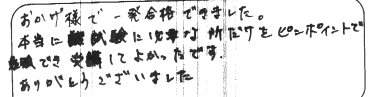 おかげ様で一発合格できました。
本当に試験に必要な所だけをピンポイントで
でき受講してよかったです。
ありがとうございました